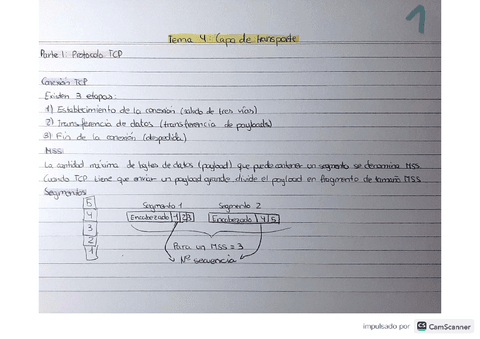 1
Tema 4: Capa de transporte
Parte 1: Protocolo TCP
Conexión TCP
Existen 3 etapas:
1) Establecimiento de la conexión (saludo de tres vías)
2) Transferencia de datos (transferencia de payloads)
3) Fin de la conexión (despedida)
MSS:
La cantidad máxima de bytes de datos (payload) que puede contener un segmento se denomina MSS.
Cuando TCP tiene que enviar un payload grande divide el payload en fragmento de tamaño MSS.
Segmentos
5
4
3
2
1
Segmento 1 Segmento 2
Encabezado 1 2 3 Encabezado 4 5
Para un MSS = 3
Nº secuencia
impulsado por CS CamScanner